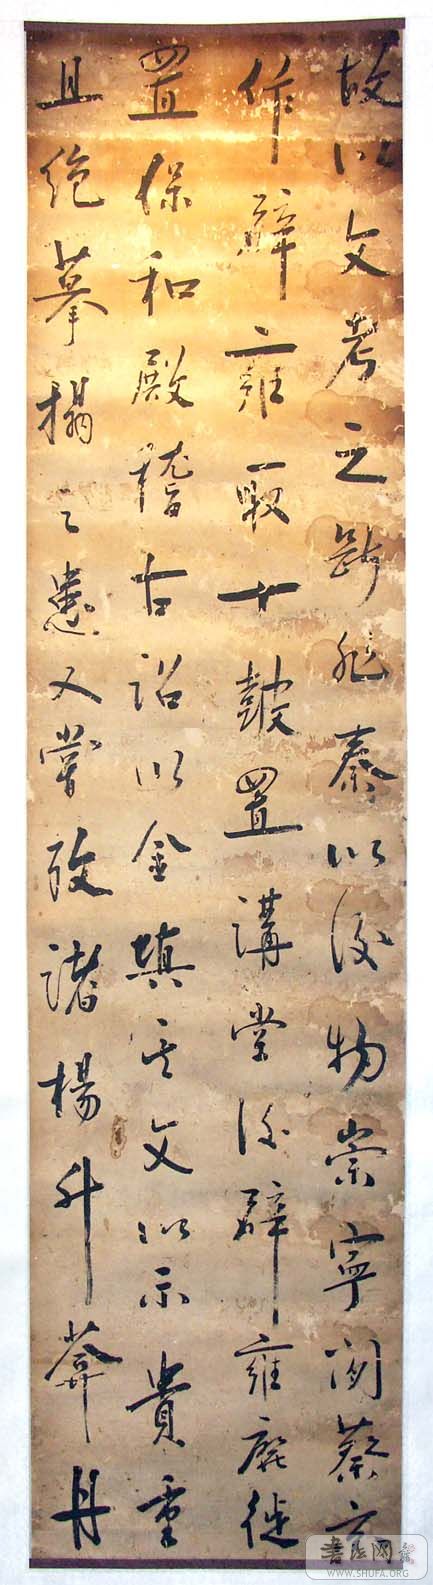 故以文考之斷非秦以後物崇寧间蔡京
作辟雍取十鼓置講堂後辟雍廢徙
置保和殿稽古詔以金填其文以示貴重
且絕摹搨之患又嘗攷諸楊升菴丹
書法网
WWW.SHUFA.ORG